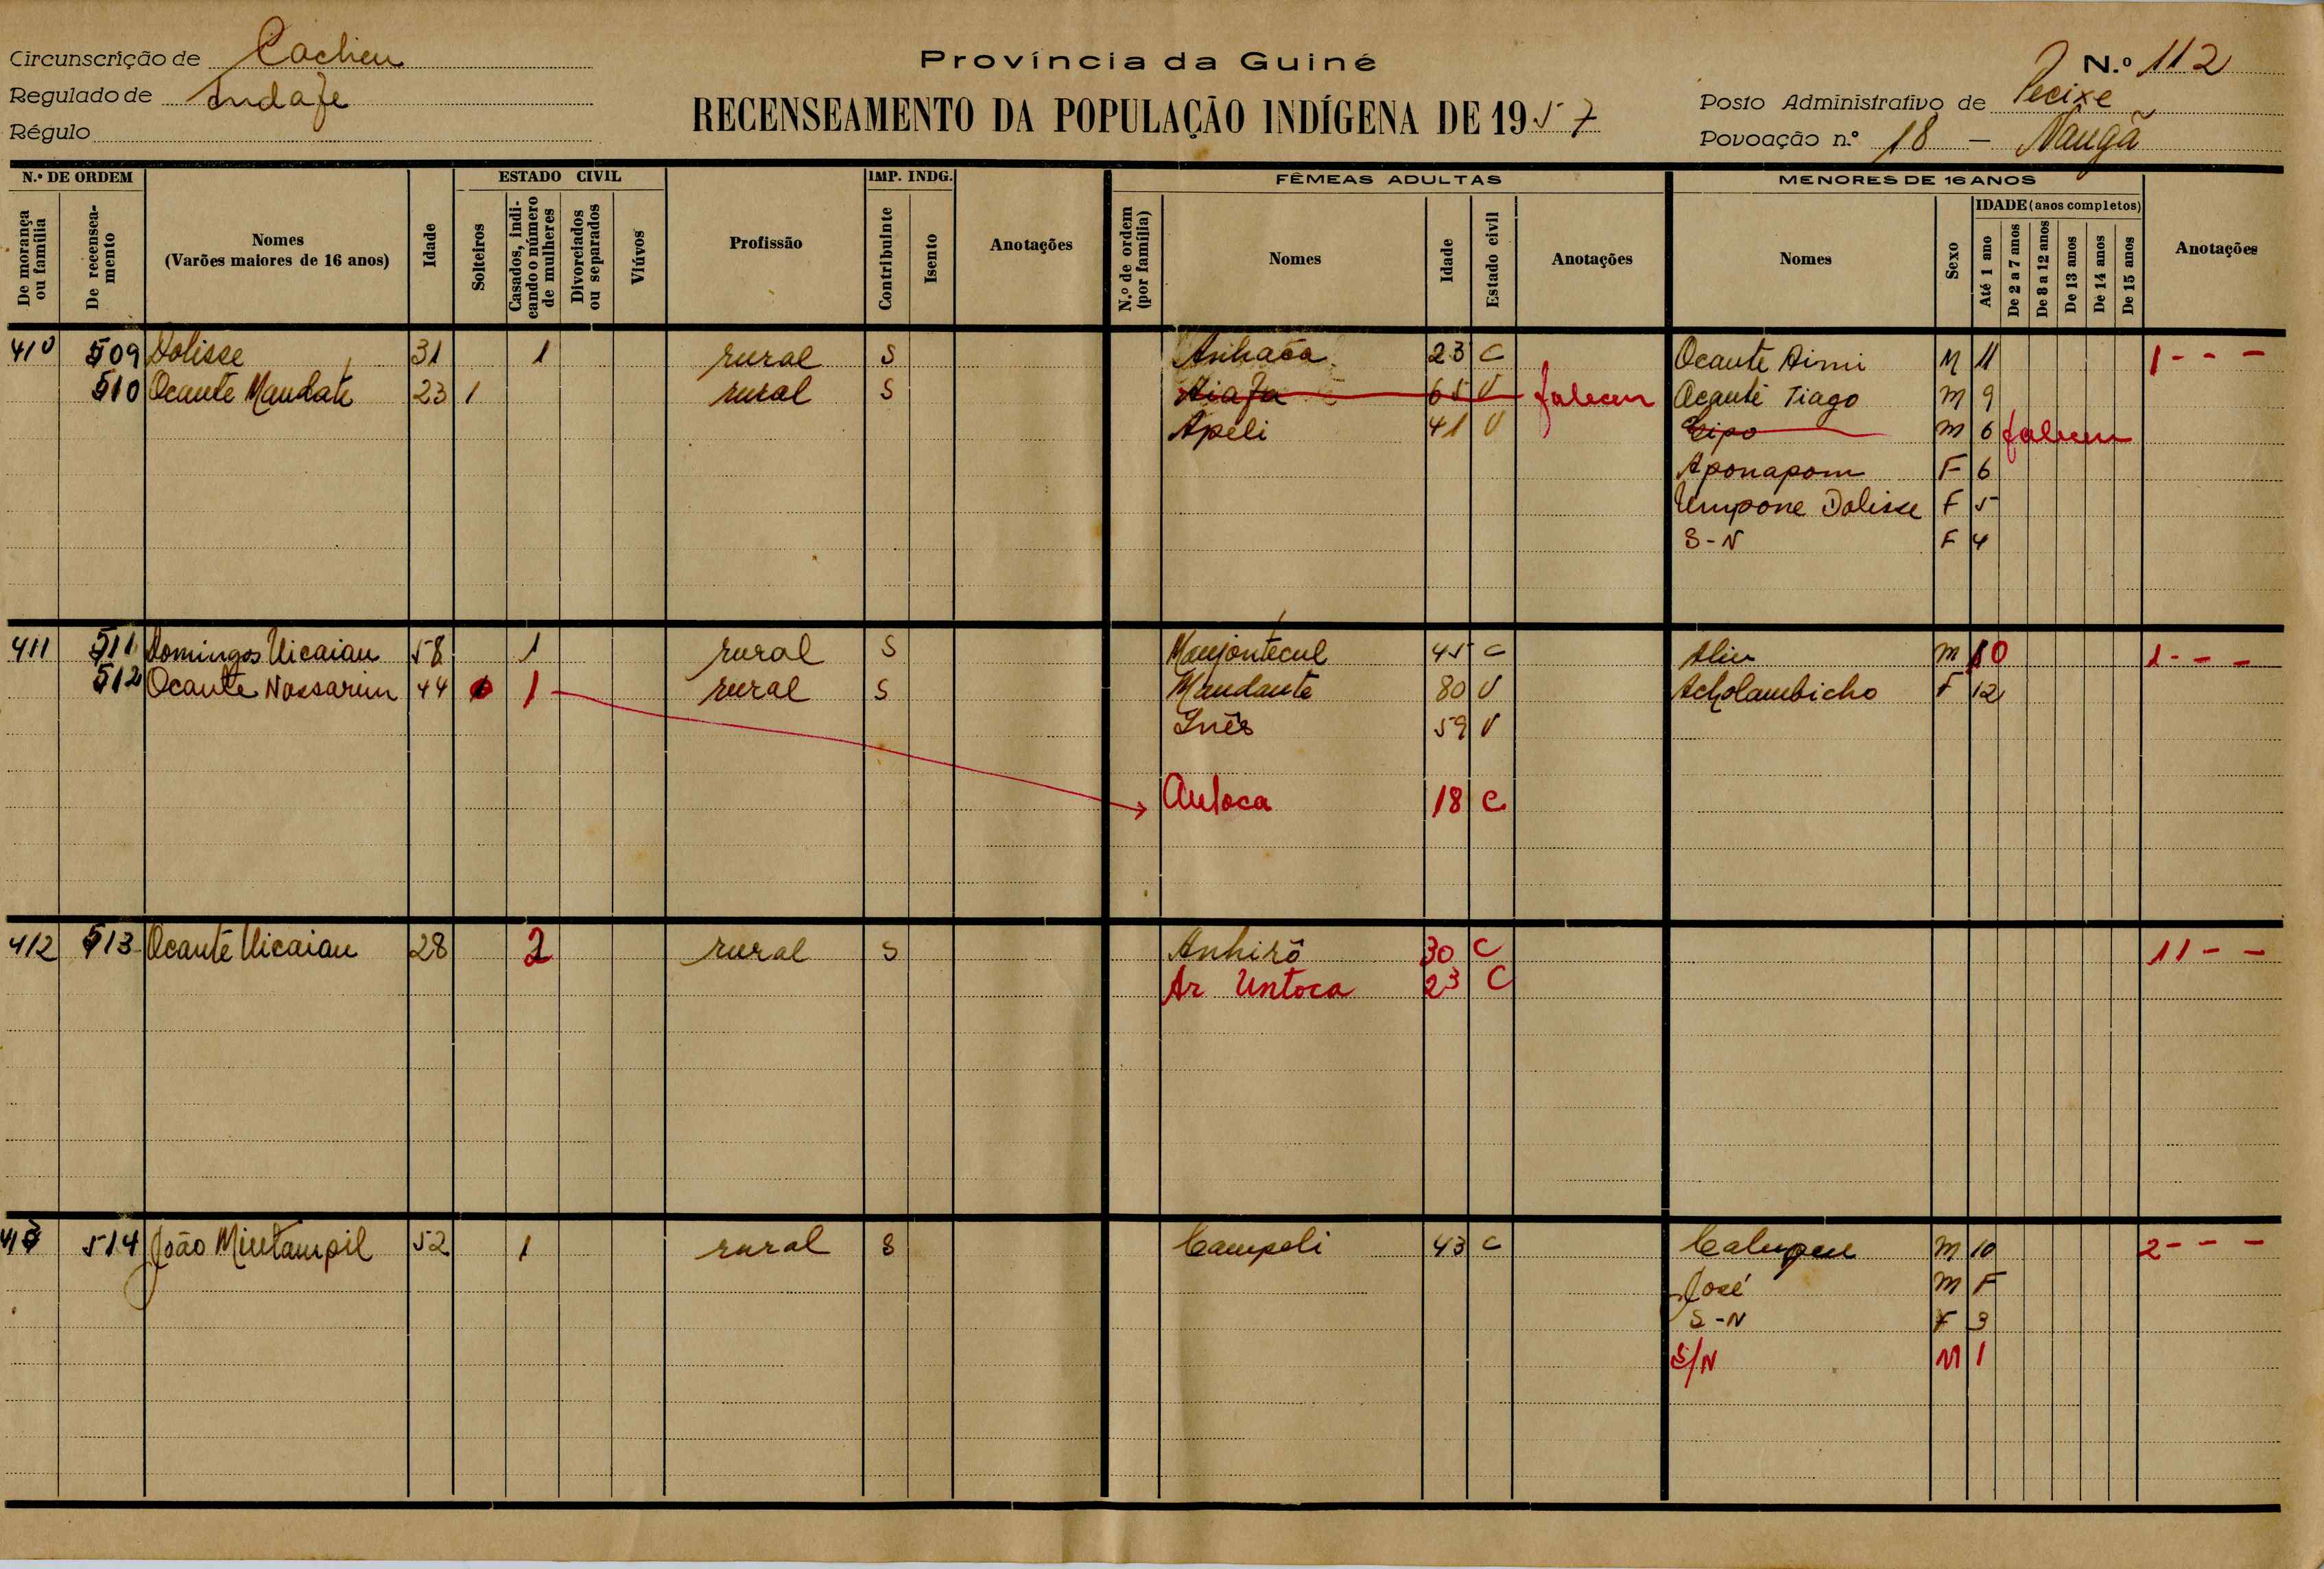 Circunscrição de Cacheu
Regulado de Indafe
Régulo
Província da Guiné
RECENSEAMENTO DA POPULAÇÃO INDÍGENA DE 1957
N.º 112
Posto Administrativo de Pecixe
Povoação n.º 18 — Naugã
N.º DE ORDEM
De morança ou família
De recenseamento
Nomes
(Varões maiores de 16 anos)
Idade
ESTADO CIVIL
Solteiros
Casados, indicando o número de mulheres
Divorciados ou separados
Viúvos
Profissão
IMP. INDG.
Contribuinte
Isento
Anotações
FÊMEAS ADULTAS
N.º de ordem (por família)
Nomes
Idade
Estado civil
Anotações
MENORES DE 16 ANOS
Nomes
Sexo
IDADE (anos completos)
Até 1 ano
De 2 a 7 anos
De 8 a 12 anos
De 13 anos
De 14 anos
De 15 anos
Anotações
410 509 Dolisse 31 1 rural S Anhaca 23 C Ocante Aimi M 11 1 - - -
510 Ocante Mandate 23 1 rural S Aiafa 65 V faleceu Ocante Tiago M 9
Apeli 41 V M 6 faleceu
Aponapom F 6
Umpone Dolisse F 5
S-N F 4
411 511 Domingos Uicaiau 58 1 rural S Manjontecul 45 C Aliu M 10 1 - - -
512 Ocante Nassarim 44 1 rural S Mandante 80 V Acholambicho F 12
Inês 59 V
Autoca 18 C
412 513 Ocante Uicaiau 28 2 rural S Anhirô 30 C 11 - -
Ar Untoca 23 C
413 514 João Mintampil 52 1 rural S Campeli 43 C Calupeu M 10 2 - - -
José M F
S-N F 3
S/N M 1